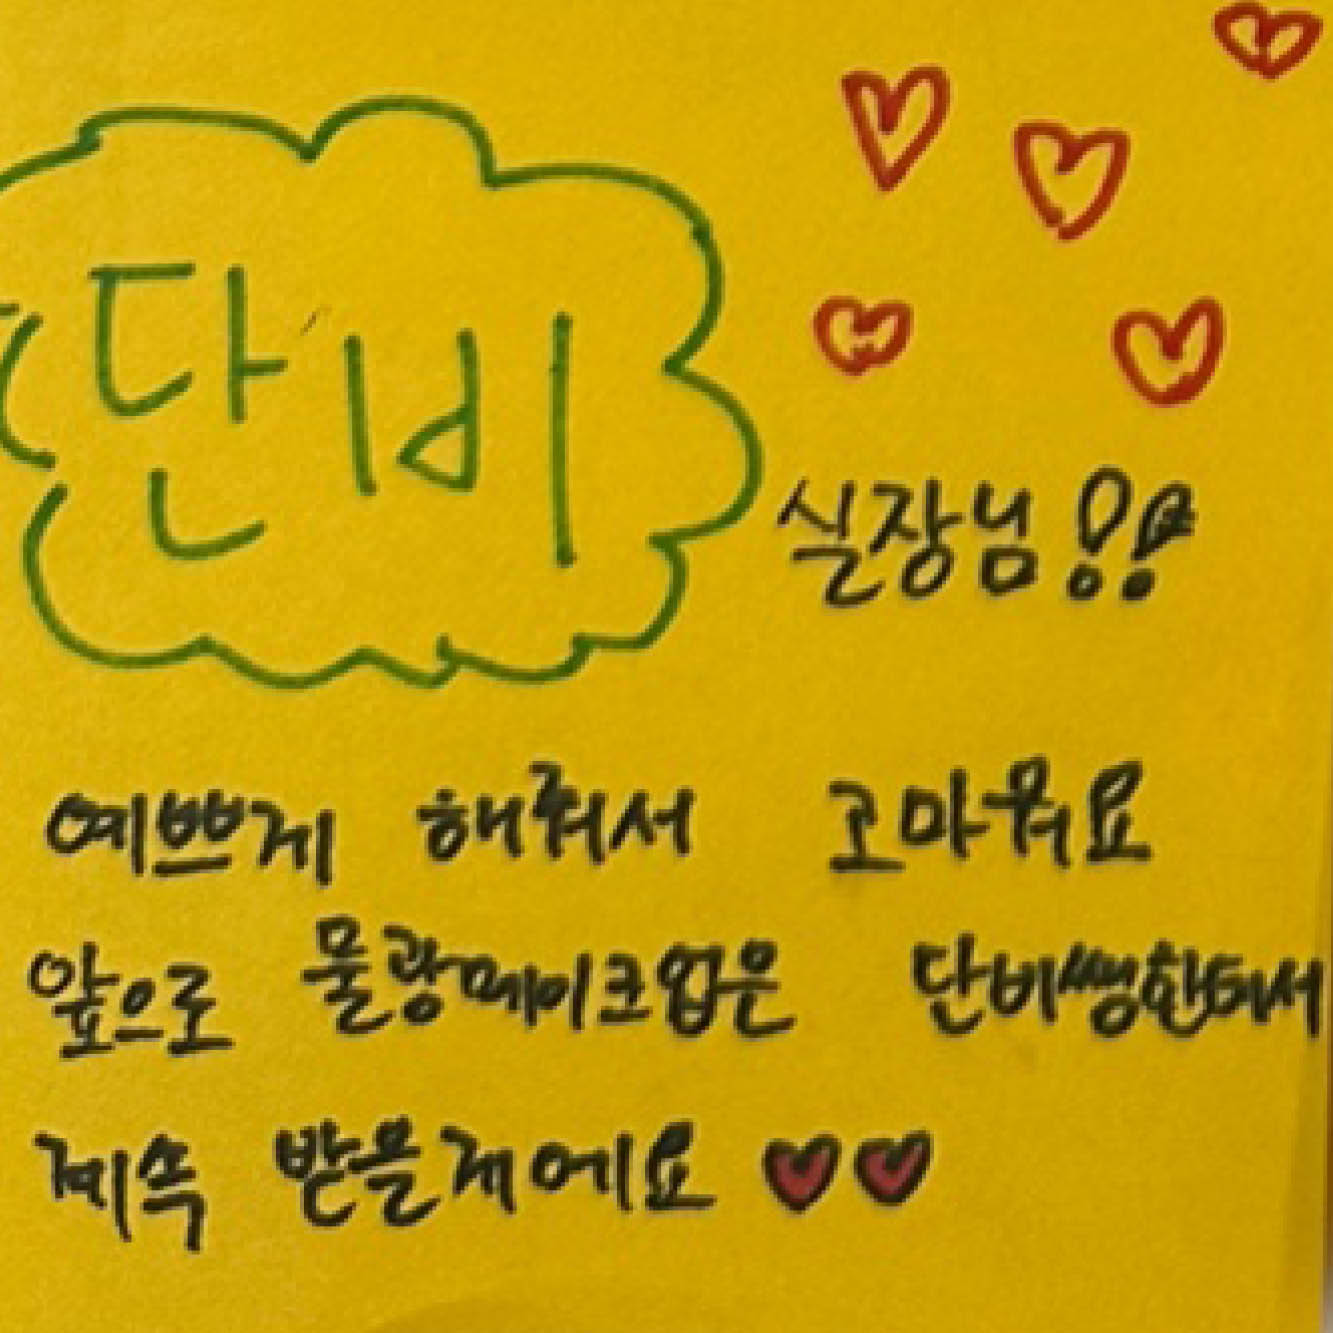 단비 실장님!!
예쁘게 해줘서 고마워요
앞으로 물광메이크업은 단비쌩한테서
계속 받을게에요 ♥♥